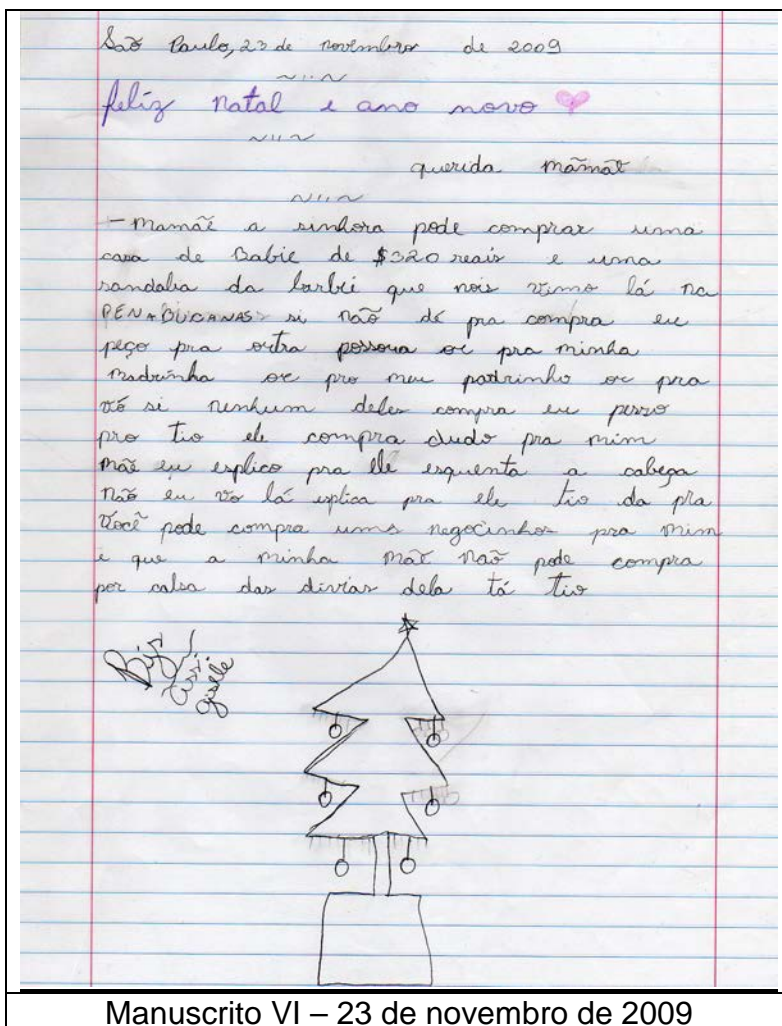 São Paulo, 23 de novembro de 2009
feliz natal e ano novo
querida mãmãe
- mamãe a sinhora pode comprar uma
casa de Babie de $320 reais e uma
sandalia da barbie que nois vimo lá na
PENABUCANAS si não dé pra compra eu
peço pra outra pessoua ou pra minha
madrinha ou pro meu padrinho ou pra
vó si nenhum deles compra eu pesso
pro tio ele compra dudo pra mim
mãe eu esplico pra ele esquenta a cabeça
não eu vo lá esplica pra ele tio da pra
você pode compra ums negocinhos pra mim
é que a minha mãe não pode compra
por calsa das divias dela tá tio
gisele
Manuscrito VI – 23 de novembro de 2009